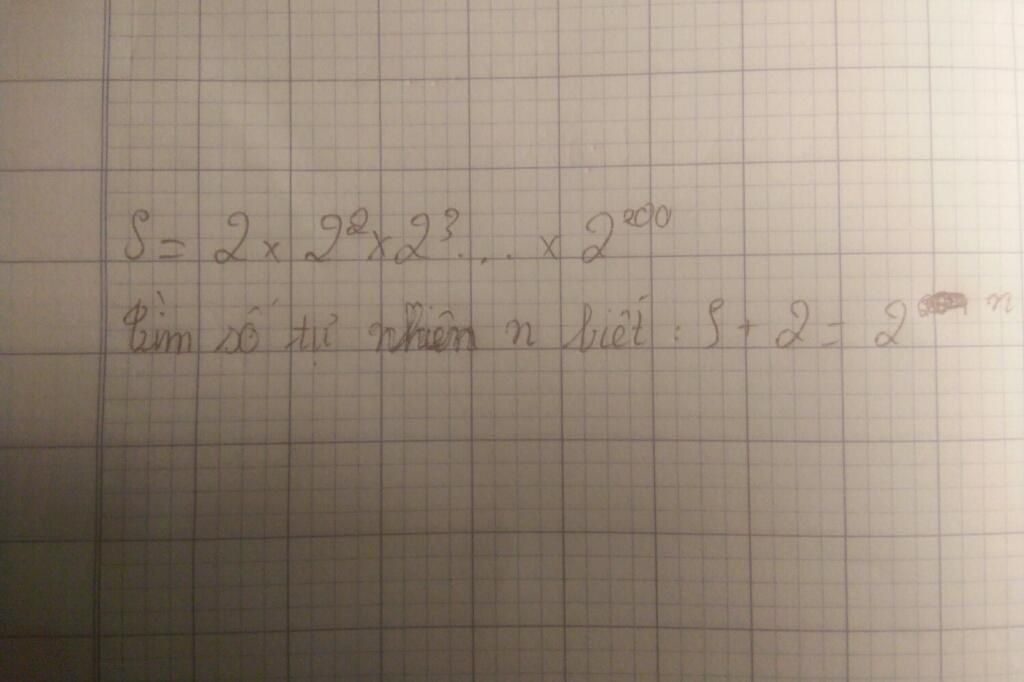 S = 2 x 2² x 2³ ... x 2²⁰⁰
Tìm số tự nhiên n biết : S + 2 = 2ⁿ